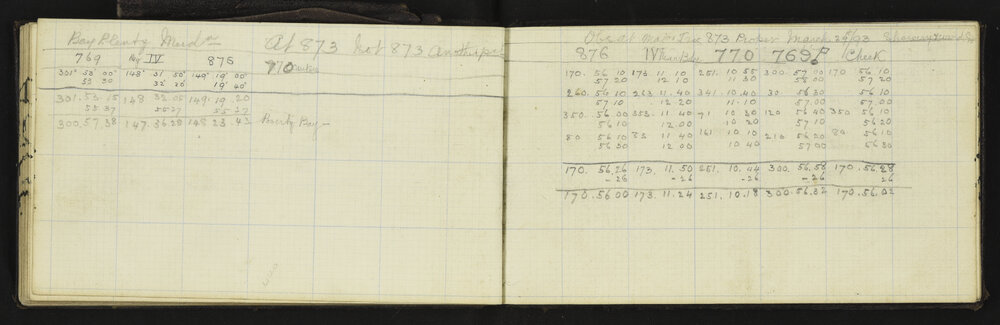 Bay Plenty Merdn At 873 not 873 another
769 IV 876 770
301° 53' 00" 148° 31' 50" 149° 19' 00"
53 30 32' 20" 19' 40"
301. 53. 15 148 32. 05 149. 19. 20
55 37 55 37 55 37
300. 57. 38 147. 36 28 148 23. 43 Poverty Bay
Obs at Major Tri 873 Proper March 28/93
876 IV 770 769 Check
170. 56 10 173 11. 10 251. 10 55 300. 57 00 170 56 10
57 20 12 10 11 30 58 00 57 20
260. 56 10 263 11. 40 341. 10. 40 30 56 30 56 10
57 10 12 20 11. 10 57. 00 57. 00
350. 56 00 353. 11 40 71 10 30 120 56 40 350 56 10
56 10 12 00 10 20 57 10 56 20
80 56 10 83 11 40 161 10 10 210 56 20 80 56 10
56 30 12 00 10 40 57 00 56 30
170. 56. 26 173. 11. 50 251. 10. 44 300. 56. 58 170. 56. 28
-26 -26 -26 -26 26
170. 56. 00 173. 11. 24 251. 10. 18 300. 56. 32 170. 56. 02